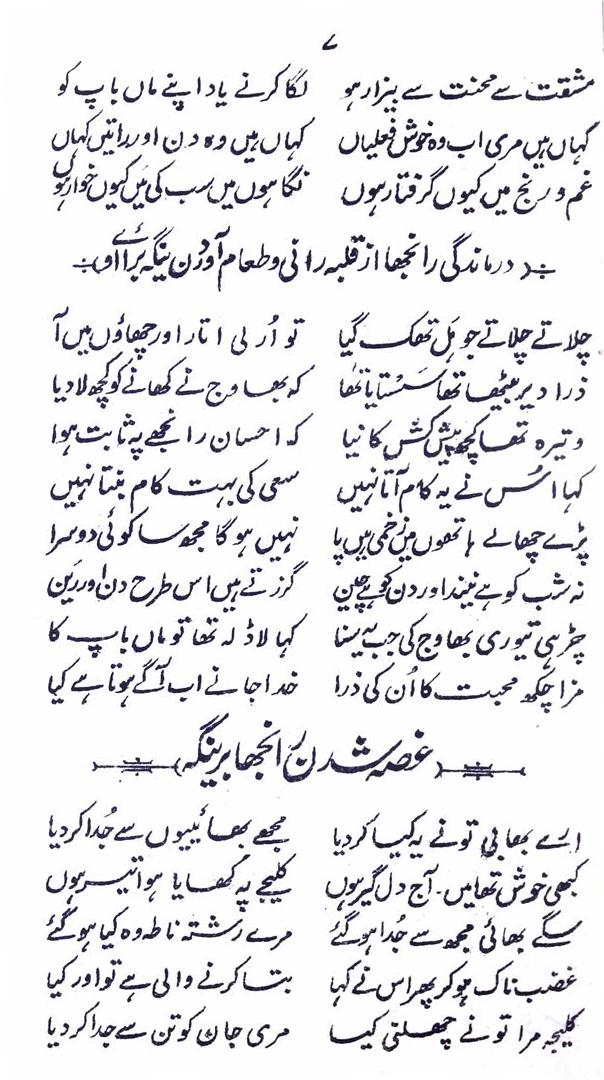 ۷
مشقت سے محنت سے بیزار ہو لگا کرنے یاد اپنے ماں باپ کو
کہاں ہیں مری اب وہ خوش فعلیاں کہاں ہیں وہ دن اور راتیں کہاں
غم و رنج میں کیوں گرفتار ہوں نگاہوں میں سب کی میں کیوں خوار ہوں
درماندگی رانجھا از قلبہ رانی و طعام آوردن بینگہ برائے او
چلاتے چلاتے جو ہَل تھک گیا تو اُرلی اتار اور چھاؤں میں آ
ذرا دیر بیٹھا تھا سَستایا تھا کہ بھاوج نے کھانے کو کچھ لا دیا
وتیرہ تھا کچھ پیش کش کا نیا کہ احسان رانجھے پہ ثابت ہوا
کہا اُس نے یہ کام آتا نہیں سعی کی بہت کام بنتا نہیں
پڑے چھالے ہاتھوں میں زخمی ہیں پا نہیں ہوگا مجھ سا کوئی دوسرا
نہ شب کو ہے نیند اور دن کو ہے چین گزرتے ہیں اس طرح دن اور رَین
چڑھی تیوری بھاوج کی جب یہ سنا کہا لاڈلہ تھا تو ماں باپ کا
مزا چکھ محبت کا اُن کی ذرا خدا جانے اب آگے ہوتا ہے کیا
غصہ شدن رانجھا بر بینگہ
ارے بھابی تو نے یہ کیا کر دیا مجھے بھائییوں سے جُدا کر دیا
کبھی خوش تھا میں۔ آج دل گیر ہوں کلیجے پہ کھایا ہوا تیر ہوں
سگے بھائی مجھ سے جُدا ہو گئے مرے رشتہ ناطہ وہ کیا ہو گئے
غضب ناک ہو کر پھر اس نے کہا بتا کرنے والی ہے تو اور کیا
کلیجہ مرا تو نے چھلنی کیا مری جان کو تن سے جدا کر دیا